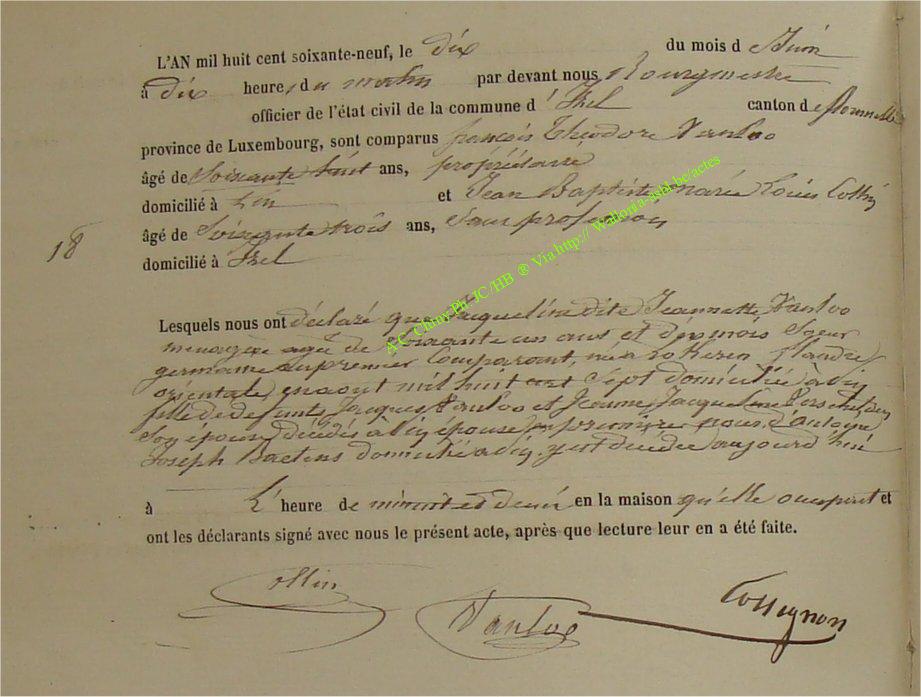 L'AN mil huit cent soixante-neuf, le dix du mois d Juin
à dix heures du matin par devant nous Bourgmestre
officier de l'état civil de la commune d' Izel canton de florenville
province de Luxembourg, sont comparus françois Théodore Vanloo
âgé de soixante huit ans, propriétaire
domicilié à Pin et Jean Baptiste marie Louis Collin
âgé de Soixante trois ans, Sans profession
domicilié à Izel
18
Lesquels nous ont déclaré que Jaqueline dite Jeannette Vanloo
menagère agée de soixante un ans et dix mois Soeur
germaine du premier Comparant, née à flandre
orientale en aout mil huit cent Sept domiciliée à Pin
fille de defunts Jacques Vanloo et Jeanne Jacqueline
Son épouse décédés à épouse en d'antoine
Joseph Baetens domicilié à Pin. y est décédée aujourd hui
à L'heure de minuit et demie en la maison qu'elle occupait et
ont les déclarants signé avec nous le présent acte, après que lecture leur en a été faite.
Collin
Vanloo
Rossignon
A.C. Chiny-Ph. JC/HB ® Via http:// Wallonia-asbl.be/actes